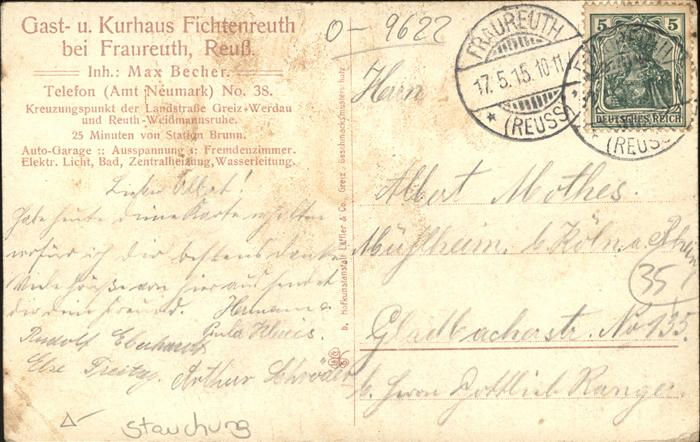 Gast- u. Kurhaus Fichtenreuth
bei Fraureuth, Reuß.
Inh.: Max Becher.
Telefon (Amt Neumark) No. 38.
Kreuzungspunkt der Landstraße Greiz-Werdau
und Reuth-Weidmannsruhe.
25 Minuten von Station Brunn.
Auto-Garage :: Ausspannung :: Fremdenzimmer.
Elektr. Licht, Bad, Zentralheizung, Wasserleitung.
Lieber Albert!
Habe heute deine Karte erhalten
wofür ich dir bestens danke
Viele Grüße von hier aus sendet
dir dein Freund. Hermann
Rudolf Eberhardt
Else Freitag. Arthur Schröder
Stauchung
O-9622
FRAUREUTH
17.5.15.10-11
* (REUSS)
5 5
DEUTSCHES REICH
(REUSS)
Herrn
Albert Mothes.
Mühlheim. b. Köln. a. Rhein
35
Gladbacherstr. No 135.
b. Herrn Gottlieb Ranger.